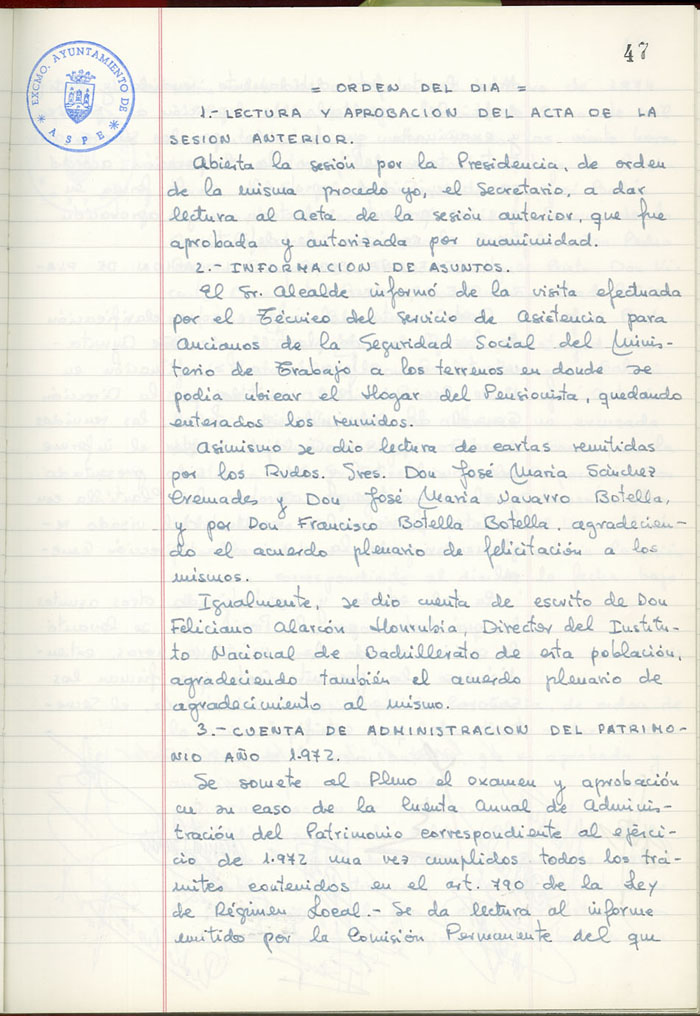 47
EXCMO. AYUNTAMIENTO DE
* ASPE *
= ORDEN DEL DIA =
1.- LECTURA Y APROBACION DEL ACTA DE LA
SESION ANTERIOR.
Abierta la sesión por la Presidencia, de orden
de la misma procedo yo, el Secretario, a dar
lectura al Acta de la sesión anterior, que fue
aprobada y autorizada por unanimidad.
2.- INFORMACION DE ASUNTOS.
El Sr. Alcalde informó de la visita efectuada
por el Técnico del Servicio de Asistencia para
Ancianos de la Seguridad Social del Minis-
terio de Trabajo a los terrenos en donde se
podia úbicar el Hogar del Pensionista, quedando
enterados los reunidos.
Asimismo se dio lectura de cartas remitidas
por los Rvdos. Sres. Don José María Sánchez
Cremades y Don José María Navarro Botella,
y por Don Francisco Botella Botella, agradecien-
do el acuerdo plenario de felicitación a los
mismos.
Igualmente, se dio cuenta de escrito de Don
Feliciano Alarcón Honrubia, Director del Institu-
to Nacional de Bachillerato de esta población,
agradeciendo también el acuerdo plenario de
agradecimiento al mismo.
3.- CUENTA DE ADMINISTRACION DEL PATRIMO-
NIO AÑO 1.972.
Se somete al Pleno el examen y aprobación
en su caso de la Cuenta Anual de Adminis-
tración del Patrimonio correspondiente al ejérci-
cio de 1.972 una vez cumplidos todos los trá-
mites contenidos en el art. 790 de la Ley
de Régimen Local.- Se da lectura al informe
emitido por la Comisión Permanente del que